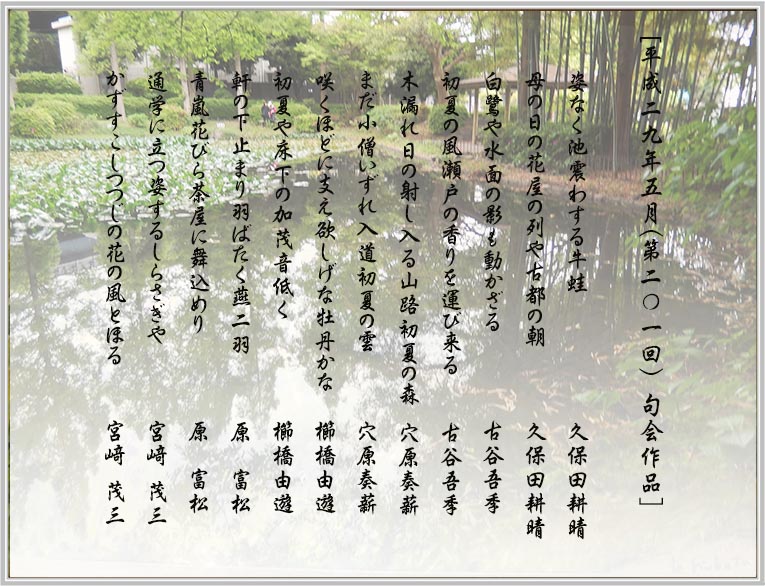 [平成二九年五月(第二〇一回) 句会作品]
姿なく池震わする牛蛙 久保田耕晴
母の日の花屋の列や古都の朝 久保田耕晴
白鷺や水面の影も動かざる 古谷吾季
初夏の風瀬戸の香りを運び来る 古谷吾季
木漏れ日の射し入る山路初夏の森 穴原奏薪
まだ小僧いずれ入道初夏の雲 穴原奏薪
咲くほどに支え欲しげな牡丹かな 櫛橋由遊
初夏や床下の加茂音低く 櫛橋由遊
軒の下止まり羽ばたく燕二羽 原 富松
青嵐花びら茶屋に舞込めり 原 富松
通学に立つ姿するしらさぎや 宮﨑 茂三
かずすこしつつじの花の風とほる 宮﨑 茂三